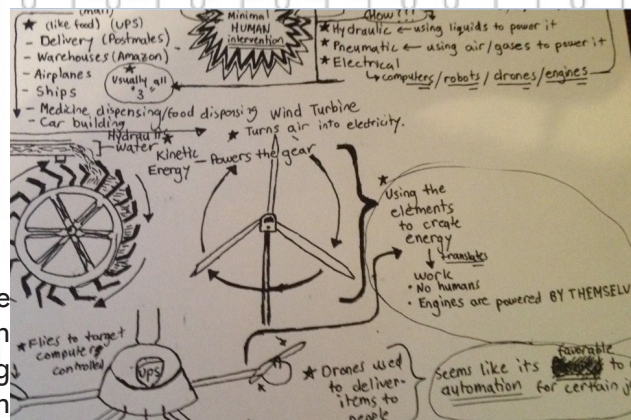 (mail)
★ (like food) (UPS)
- Delivery (Postmates)
- Warehouses (Amazon)
- Airplanes
- Ships
- Medicine dispensing/food dispensing
- Car building
★
Usually all
"3"
Minimal
HUMAN
intervention
How???
★ Hydraulic ← using liquids to power it
★ Pneumatic ← using air/gases to power it
★ Electrical
↳ computers/robots/drones/engines
Wind Turbine
★ Turns air into electricity.
Hydraulic ★
water
Kinetic
Energy
- Powers the gear
★
Using the
elements
to create
energy
↓ translates
work
• No humans
• Engines are powered BY THEMSELV
★ Flies to target
computer
controlled
UPS
★ Drones used
to deliver
items to
people
Seems like its favorable to
automation for certain j
e
n
g
n